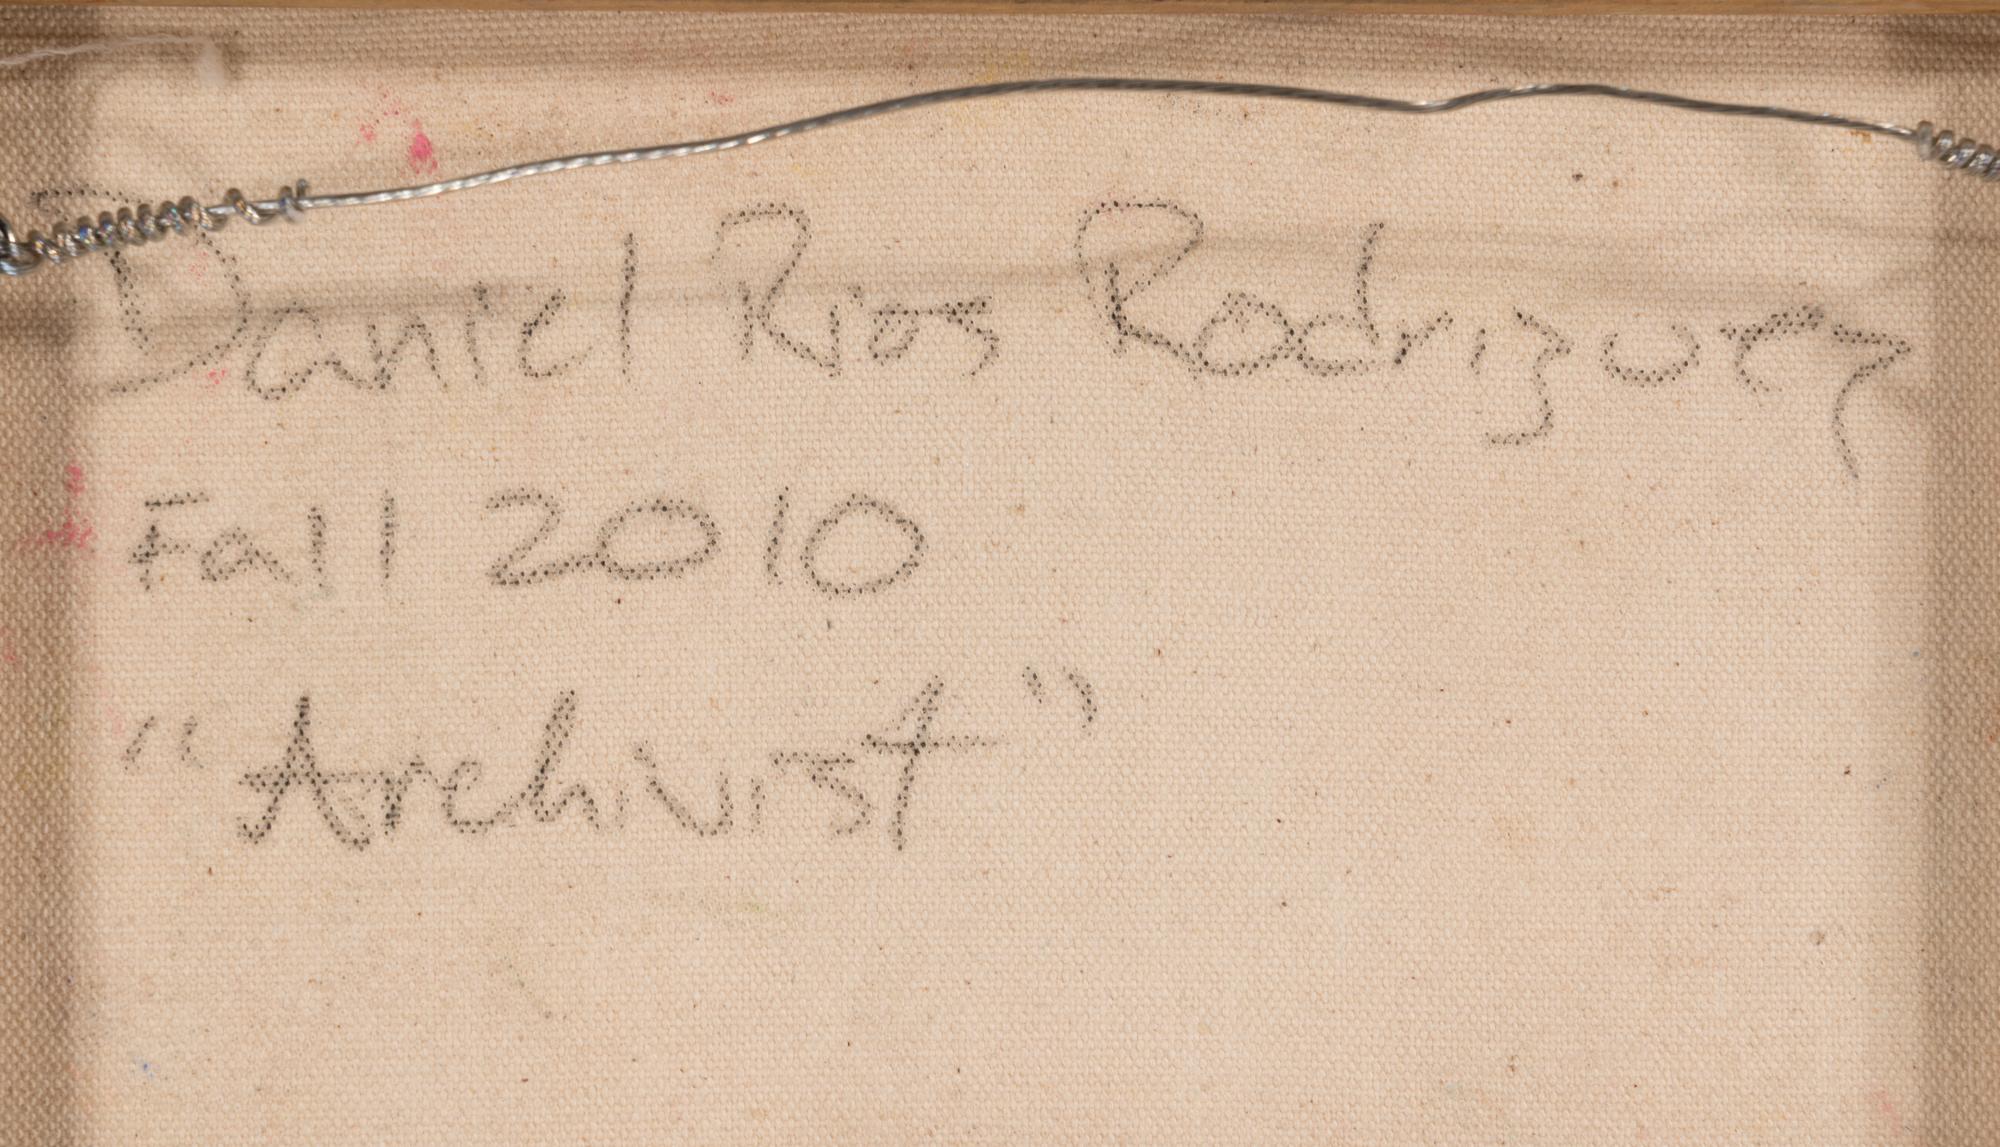 Daniel Rios Rodriguez
Fall 2010
"Archivist"